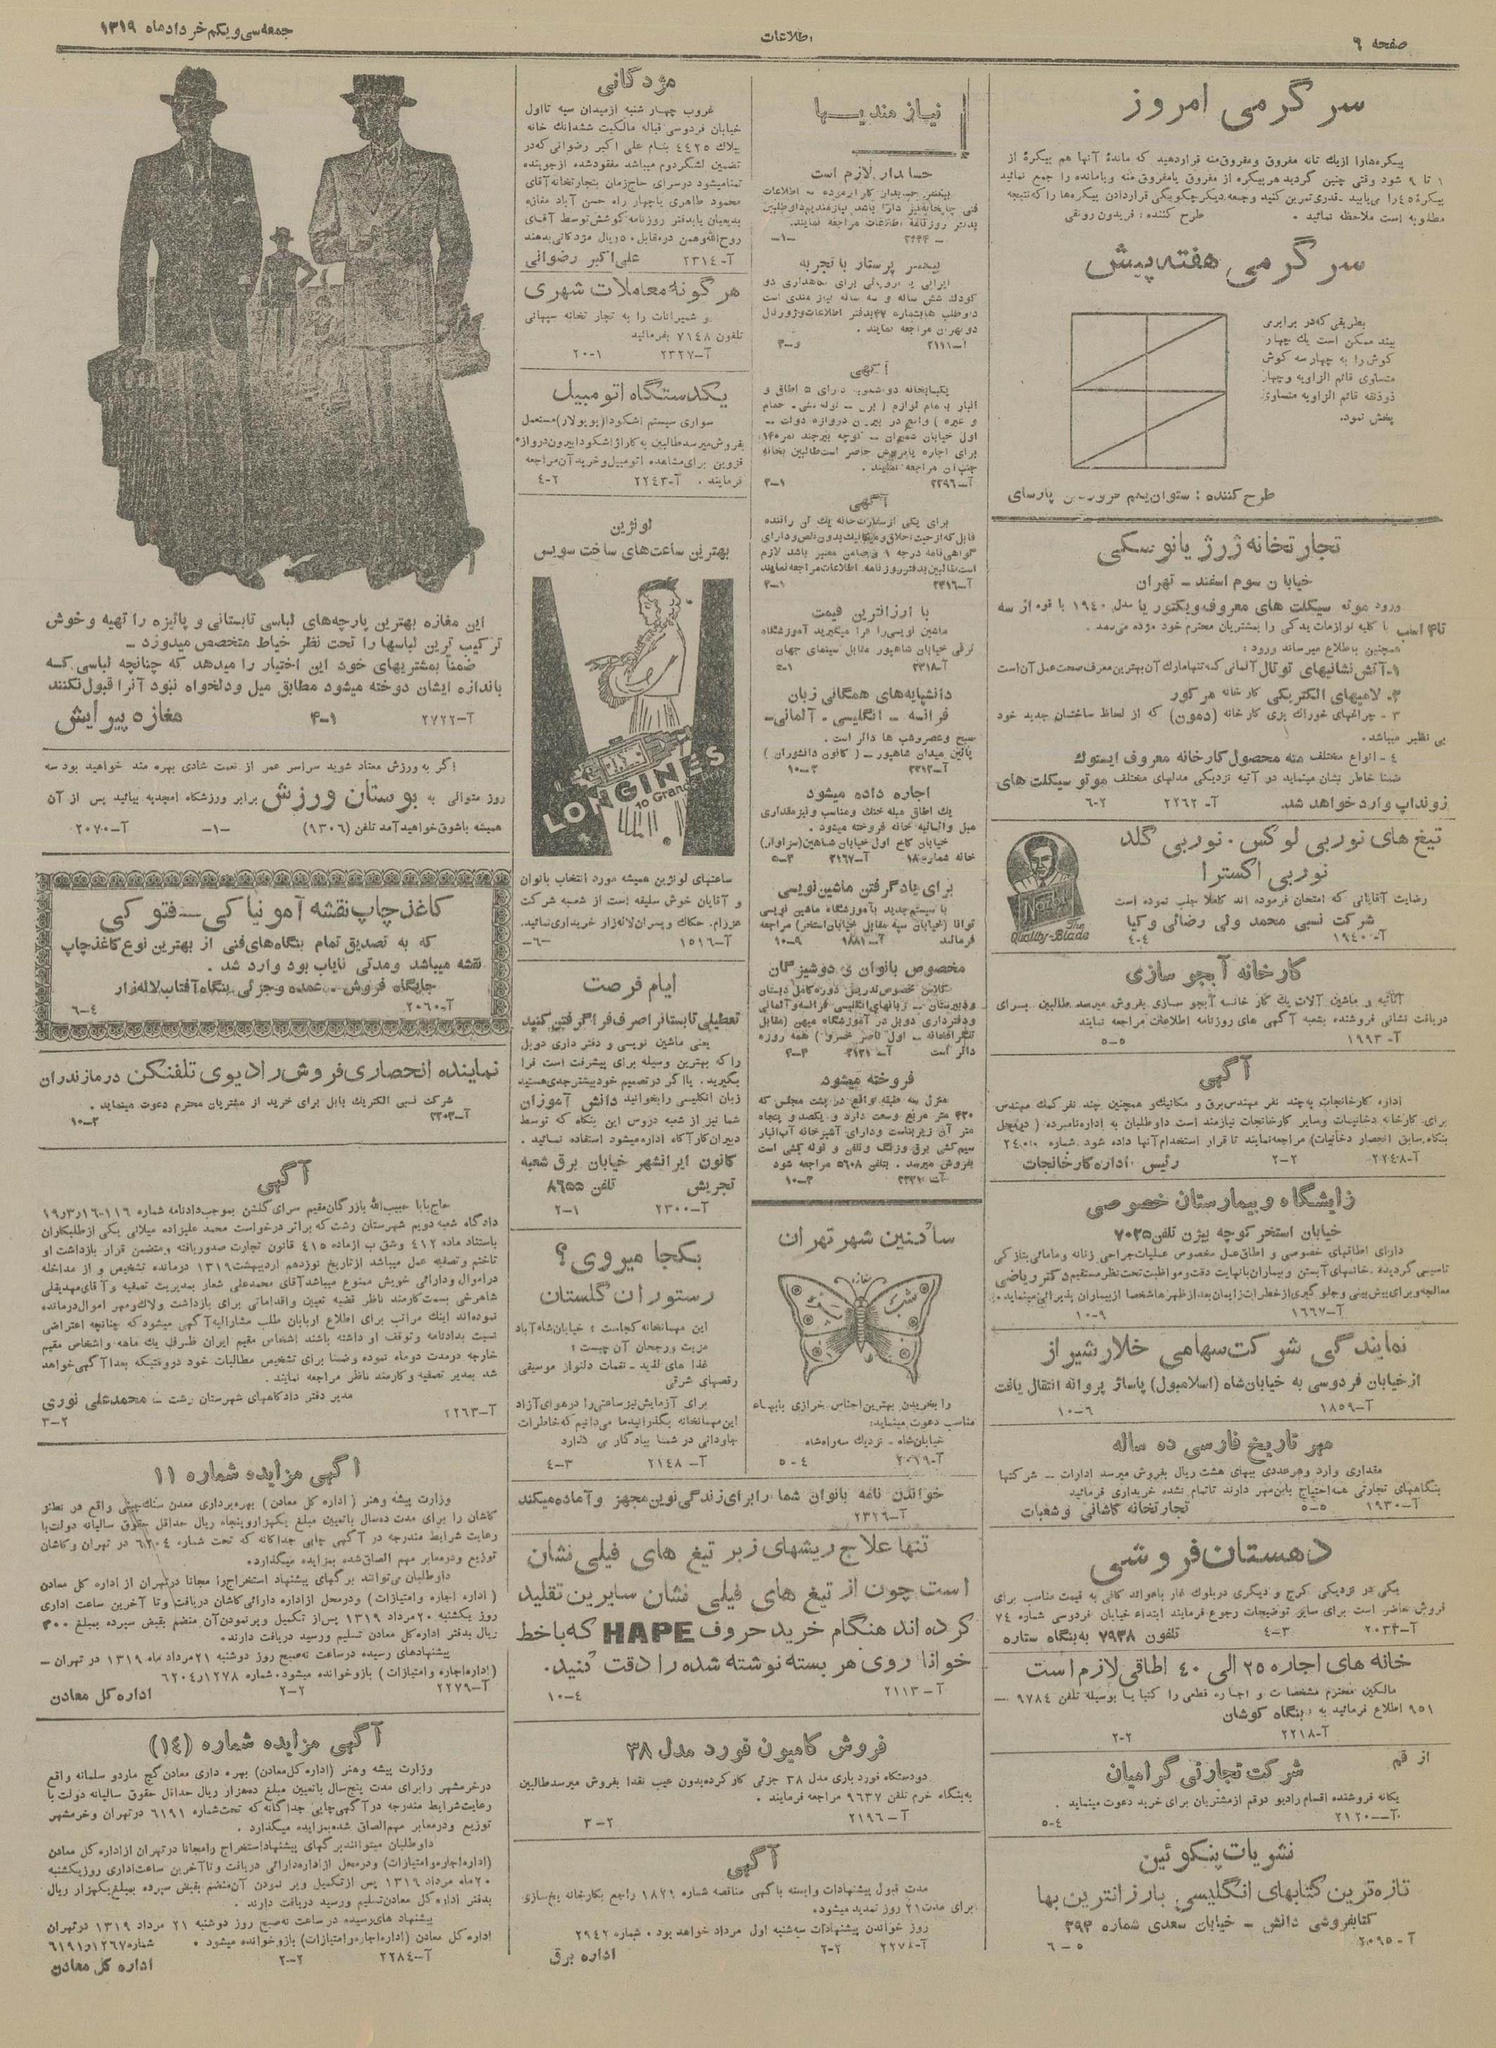 صفحه ۶
اطلاعات
جمعه سی و یکم خرداد ماه ۱۳۱۹
سرگرمی امروز
پیکره‌ها را از یک تا نه مفروق و مفروق‌منه قرار دهید که ماندهٔ آنها هم پیکرهٔ از
۱ تا ۹ شود وقتی چنین گردید هر پیکره از مفروق یا مفروق منه و یا مانده را جمع نمائید
پیکرهٔ ٤۵ را می‌یابید . قدری تمرین کنید و جمعه دیگر چگونگی قراردادن پیکره‌ها را که نتیجه
مطلوبه است ملاحظه نمائید .
طرح کننده : فریدون رونقی
سرگرمی هفته پیش
بطریقی که در برابری
بیند ممکن است یک چهار
گوش را به چهار سه گوش
متساوی قائم الزاویه و چهار
ذوذنقه قائم الزاویه متساوی
پخش نمود.
طرح کننده : ستوان یکم پارسای
تجارتخانه ژرژ یانوسکی
خیابان سوم اسفند - تهران
ورود موتو سیکلت های معروف ویکتوریا مدل ۱۹٤۰ با قوه از سه
با کلیه لوازمات یدکی را بمشتریان محترم خود مژده میدهد .
همچنین باطلاع میرساند ورود :
۱- آتش نشانیهای توتال آلمانی که تنها مارک آن بهترین معرف صحت عمل آن است
۲- لامپهای الکتریکی کارخانه مرکور
۳ - چراغهای خوراک پزی کارخانه (دمون) که از لحاظ ساختمان جدید خود
بی نظیر میباشد .
٤ - انواع مختلف مته محصول کارخانه معروف ایستوک
ضمنا خاطر نشان مینماید در آتیه نزدیکی مدلهای مختلف موتوسیکلت های
زونداپ وارد خواهد شد.
آ- ۲۲۶۲
۲-۶
تیغ های نوربی لوکس . نوربی گلد
نوربی اکسترا
رضایت آقایانی که امتحان فرموده اند کاملا جلب نموده است
شرکت نسبی محمد ولی رضائی و کیا
آ-۱۹٤۰
٤-٤
The Quality-Blade
کارخانه آبجو سازی
اثاثیه و ماشین آلات یک کارخانه آبجو سازی بفروش میرسد طالبین برای
دریافت نشانی فروشنده بشعبه آگهی های روزنامه اطلاعات مراجعه نمایند
آ- ۱۹۹۳
۵-۵
آگهی
اداره کارخانجات به چند نفر مهندس برق و مکانیک و همچنین چند نفر کمک مهندس
برای کارخانه دخانیات و سایر کارخانجات نیازمند است داوطلبان به اداره نامبرده ( در محل
بنگاه سابق انحصار دخانیات) مراجعه نمایند تا قرار استخدام آنها داده شود.
آ-۲۲٤۸
۲-۲
رئیس اداره کارخانجات
زایشگاه و بیمارستان خصوصی
خیابان استخر کوچه بیژن تلفن ۷۰۳۵
دارای اطاقهای خصوصی و اطاق عمل مخصوص عملیات جراحی زنانه و مامائی بتازگی
تاسیس گردیده . خانمهای آبستن و بیماران با نهایت دقت و مواظبت تحت نظر مستقیم دکتر ریاضی
معالجه و برای پیش بینی و جلوگیری از خطرات زایمان بعد از ظهرها شخصا از بیماران پذیرائی مینماید .
آ-۱۶۶۷
۹-۱۰
نمایندگی شرکت سهامی خلار شیراز
از خیابان فردوسی به خیابان شاه (اسلامبول) پاساژ پروانه انتقال یافت
آ-۱۸۵۹
۶-۱۰
مهر تاریخ فارسی ده ساله
مقداری وارد و هر عددی ببهای هشت ریال بفروش میرسد ادارات - شرکتها
بنگاههای تجارتی همه احتیاج باین مهر دارند تا تمام نشده خریداری فرمائید
آ-۱۹۳۰
۵-۵
تجارتخانه کاشانی و شعبات
دهستان فروشی
یکی در نزدیکی کرج و دیگری در بلوک غار با عوائد کافی به قیمت مناسب برای
فروش حاضر است برای سایر توضیحات رجوع فرمایند ابتداء خیابان فردوسی شماره ۷٤
آ-۲۰۳۳
۳-٤
تلفون ۷۹۳۸ به بنگاه ستاره
خانه های اجاره ۲۵ الی ٤۰ اطاقی لازم است
مالکین محترم مشخصات و اجاره قطعی را کتبا یا بوسیله تلفن ۹۷۸٤ -
۹۵۱ اطلاع فرمائید به : بنگاه کوشان
آ-۲۲۱۸
۲-۲
از قم
شرکت تجارتی گرامیان
یگانه فروشنده اقسام رادیو در قم از مشتریان برای خرید دعوت مینماید .
آ-۲۱۲۰
٤-۵
نشریات پنگوئین
تازه ترین کتابهای انگلیسی بارزانترین بها
کتابفروشی دانش - خیابان سعدی شماره ۳۹۳
آ -۲۰۹۵
۵ - ۶
نیازمندیها
حسابدار لازم است
بدفتر روزنامه اطلاعات مراجعه نمایند.
-۱-
بیکنفر پرستار با تجربه
کودک شش ساله و سه ساله نیازمندی است
داوطلب ها بشماره ٤۷ بدفتر اطلاعات و ژورنال
دو تهران مراجعه نمایند .
آ-۲۱۱۱
آگهی
اول خیابان شمیران - کوچه بیرجند نمره ۱۴
برای اجاره یا فروش حاضر است طالبین بخانه
مراجعه نمایند .
آ-۲۲۹۶
۱-۳
آگهی
برای یکی از سفارت خانه یک تن راننده
گواهی نامه درجه ۱ و ضامن معتبر باشد لازم
است طالبین بدفتر روزنامه اطلاعات مراجعه نمایند
آ-۲۳۱۶
۱-۳
با ارزانترین قیمت
ماشین نویسی را فرا میگیرید آموزشگاه
ترقی خیابان شاهپور مقابل سینمای جهان
آ-۲۳۱۸
دانشپایه های همگانی زبان
فرانسه - انگلیسی - آلمانی -
صبح و عصر و شب ها دائر است .
پائین میدان شاهپور - ( کانون دانشوران )
آ-۲۳۱۲
۳-۱۰
اجاره داده میشود
یک اطاق مبله خنک و مناسب و نیز مقداری
مبل و اثاثیه خانه فروخته میشود .
خیابان کاخ اول خیابان شاهین (سزاوار)
خانه شماره ۱۸
آ-۲۱۶۷
۳-۵
برای یادگرفتن ماشین نویسی
با سیستم جدید بآموزشگاه ماشین نویسی
توانا (خیابان سپه مقابل خیابان استخر) مراجعه
فرمائید
آ-۱۸۸۱
۹-۱۰
مخصوص بانوان و دوشیزگان
کلاس مخصوص تدریس دوره کامل دبستان
و دبیرستان - زبانهای انگلیسی فرانسه و آلمانی
و دفترداری دوبل در آموزشگاه میهن (مقابل
تلگرافخانه - اول ناصر خسرو) همه روزه
دائر است
فروخته میشود
منزل سه طبقه واقع در پشت مجلس که
۴۳۰ متر مربع وسعت دارد و یکصد و پنجاه
متر آن زیر بناست و دارای آشپزخانه آب انبار
سیم کشی برق و زنگ و تلفن و لوله کشی است
بفروش میرسد . بتلفن ۵۶۰۸ مراجعه شود
۳-۱۰
ساکنین شهر تهران
مغازه
شب پره
را بخریدن بهترین اجناس خرازی بابهاء
مناسب دعوت مینماید:
خیابان شاه - نزدیک سه راه شاه
آ-۲۰۶۹
٤ - ۵
مژدگانی
غروب چهار شنبه از میدان سپه تا اول
خیابان فردوسی قباله مالکیت ششدانک خانه
پلاک ٤٤۲۵ بنام علی اکبر رضوانی که در
تضمین لشگر دوم میباشد مفقود شده از جوینده
تمنا میشود در سرای حاج زمان بتجارتخانه آقای
محمود طاهری یا چهار راه حسن آباد مغازه
بدیعیان یا بدفتر روزنامه کوشش توسط آقای
روح الله وهمن در مقابل ۵۰ ریال مژدگانی بدهند
آ- ۲۳۱٤
علی اکبر رضوانی
هر گونه معاملات شهری
و شمیرانات را به تجارتخانه سپهانی
تلفون ۷۱٤۸ بفرمائید
آ-۲۳۲۷
۱-۲۰
یکدستگاه اتومبیل
سواری سیستم اشکودا (پوپولار) مستعمل
بفروش میرسد طالبین به گاراژ اشکودا بیرون دروازه
قزوین برای مشاهده اتومبیل و خرید آن مراجعه
فرمایند .
آ-۲۲٤۳
۲-٤
لونژین
بهترین ساعت های ساخت سویس
LONGINES
10 Grands
ساعتهای لونژین همیشه مورد انتخاب بانوان
و آقایان خوش سلیقه است از شعبه شرکت
عزرا م. حکاک و پسران لاله زار خریداری نمائید.
آ-۱۵۱۶
-۶-
ایام فرصت
تعطیلی تابستانرا صرف فرا گرفتن کنید
یعنی ماشین نویسی و دفتر داری دوبل
را که بهترین وسیله برای پیشرفت است فرا
بگیرید . یا اگر در تصمیم خود بیشتر جدی هستید
زبان انگلیسی را بخوانید دانش آموزان
شما نیز از شعبه دروس این بنگاه که توسط
دبیران کارآگاه اداره میشود استفاده نمائید .
کانون ایرانشهر خیابان برق شعبه
تجریش
تلفن ۸۶۵۵
آ-۲۳۰۰
۱-۲
بکجا میروی؟
رستوران گلستان
این مهمانخانه کجاست ؛ خیابان شاه آباد
مزیت و رجحان آن چیست ؛
غذاهای لذید - نغمات دلنواز موسیقی
رقصهای شرقی
برای آزمایش نیز ساعتی را در هوای آزاد
این مهمانخانه بگذرانید ما می دانیم که خاطرات
جاودانی در شما بیادگار می گذارد
آ- ۲۱٤۸
۳-٤
خواندن نامه بانوان شما را برای زندگی نوین مجهز و آماده میکند
آ-۲۳۲۶
تنها علاج ریشهای زبر تیغ های فیلی نشان
است چون از تیغ های فیلی نشان سایرین تقلید
کرده اند هنگام خرید حروف HAPE که با خط
خوانا روی هر بسته نوشته شده را دقت کنید.
آ- ۲۱۱۳
٤-۱۰
فروش کامیون فورد مدل ۳۸
دو دستگاه فورد باری مدل ۳۸ جزئی کار کرده بدون عیب نقدا بفروش میرسد طالبین
به بنگاه خرم تلفن ۹۶۳۷ مراجعه فرمایند .
آ-۲۱۹۶
۲-۳
آگهی
مدت قبول پیشنهادات وابسته با گهی مناقصه شماره ۱۸۲۹ راجع بکارخانه یخ سازی
برای مدت ۲۱ روز تمدید میشود.
روز خواندن پیشنهادات سه شنبه اول مرداد خواهد بود . شماره ۲۹٤۲
آ-۲۲۷۸
۲-۲
اداره برق
این مغازه بهترین پارچه های لباسی تابستانی و پائیزه را تهیه و خوش
ترکیب ترین لباسها را تحت نظر خیاط متخصص میدوزد -
ضمنا بمشتریهای خود این اختیار را میدهد که چنانچه لباسی که
باندازه ایشان دوخته میشود مطابق میل و دلخواه نبود آنرا قبول نکنند
آ-۲۷۲۲
۱-۴
مغازه پیرایش
اگر به ورزش معتاد شوید سراسر عمر از نعمت شادی بهره مند خواهید بود سه
روز متوالی به بوستان ورزش برابر ورزشگاه امجدیه بیائید پس از آن
همیشه باشوق خواهید آمد تلفن (۹۳۰۶)
-۱-
آ-۲۰۷۰
کاغذ چاپ نقشه آمونیاکی - فتوکپی
که به تصدیق تمام بنگاه های فنی از بهترین نوع کاغذ چاپ
نقشه میباشد و مدتی نایاب بود وارد شد .
جایگاه فروش . عمده و جزئی بنگاه آفتاب لاله زار
آ-۲۰۶۰
٤-۶
نماینده انحصاری فروش رادیوی تلفنکن در مازندران
شرکت نسبی الکتریک بابل برای خرید از مشتریان محترم دعوت مینماید .
آ-۲۳۰۳
۲-۱۰
آگهی
حاج بابا حبیب الله بازرگان مقیم سرای گلشن بموجب دادنامه شماره ۱۱۶-۱۶ر۳ر۱۹
دادگاه شعبه دویم شهرستان رشت که بر اثر درخواست محمد علیزاده میلانی یکی از طلبکاران
باستناد ماده ٤۱۲ و شق ب از ماده ٤۱۵ قانون تجارت صدور یافته و متضمن قرار بازداشت او
تاختم و تصفیه عمل میباشد از تاریخ نوزدهم اردیبهشت ۱۳۱۹ درمانده تشخیص و از مداخله
در اموال و دارائی خویش ممنوع میباشد آقای محمدعلی شعار بمدیریت تصفیه و آقای مهدیقلی
شاهرخی بسمت کارمند ناظر قضیه تعیین و اقداماتی برای بازداشت و لاک و مهر اموال درمانده
نموده اند اینک مراتب برای اطلاع اربابان طلب مشارالیه آگهی میشود که چنانچه اعتراضی
نسبت بدادنامه و توقف او داشته باشند اشخاص مقیم ایران ظرف یک ماهه و اشخاص مقیم
خارجه در مدت دو ماه نموده و ضمنا برای تشخیص مطالبات خود در وقتیکه بعدا آگهی خواهد
شد بمدیر تصفیه و کارمند ناظر مراجعه نمایند .
مدیر دفتر دادگاههای شهرستان رشت - محمدعلی نوری
آ-۲۲۶۳
۲-۳
آگهی مزایده شماره ۱۱
وزارت پیشه و هنر ( اداره کل معادن ) بهره برداری معدن سنک چینی واقع در نطنز
کاشان را برای مدت ده سال با تعیین مبلغ یکهزار و پنجاه ریال حداقل حقوق سالیانه دولت با
رعایت شرایط مندرجه در آگهی چاپی جداگانه که تحت شماره ۶۲۰٤ در تهران و کاشان
توزیع و در معابر مهم الصاق شده بمزایده میگذارد.
داوطلبان می توانند برگهای پیشنهاد استخراج را مجانا در تهران از اداره کل معادن
( اداره اجاره و امتیازات ) و در محل از اداره دارائی کاشان دریافت و تا آخرین ساعت اداری
روز یکشنبه ۲۰ مرداد ۱۳۱۹ پس از تکمیل و پر نمودن آن منضم بقبض سپرده بمبلغ ۳۰۰
ریال بدفتر اداره کل معادن تسلیم و رسید دریافت دارند .
پیشنهادهای رسیده در ساعت نه صبح روز دوشنبه ۲۱ مرداد ماه ۱۳۱۹ در تهران -
(اداره اجاره و امتیازات ) باز و خوانده میشود . شماره ۱۲۷۸ر۶۲۰٤
آ-۲۲۷۹
۲-۲
اداره کل معادن
آگهی مزایده شماره (۱٤)
وزارت پیشه و هنر (اداره کل معادن) بهره داری معادن گچ ماردو سلمانه واقع
در خرمشهر را برای مدت پنجسال با تعیین مبلغ ده هزار ریال حداقل حقوق سالیانه دولت با
رعایت شرایط مندرجه در آگهی چاپی جداگانه که تحت شماره ۶۱۹۱ در تهران و خرمشهر
توزیع و در معابر مهم الصاق شده بمزایده میگذارد .
داوطلبان میتوانند برگهای پیشنهاد استخراج را مجانا در تهران از اداره کل معادن
(اداره اجاره و امتیازات) و در محل از اداره دارائی دریافت و تا آخرین ساعت اداری روز یکشنبه
۲۰ ماه مرداد ۱۳۱۹ پس از تکمیل و پر نمودن آن منضم بقبض سپرده بمبلغ یکهزار ریال
بدفتر اداره کل معادن تسلیم و رسید دریافت دارند .
پیشنهادهای رسیده در ساعت نه صبح روز دوشنبه ۲۱ مرداد ۱۳۱۹ در تهران
اداره کل معادن (اداره اجاره و امتیازات) باز و خوانده میشود .
شماره ۱۲۶۷ر۶۱۹۱
آ-۲۲۸٤
۲-۲
اداره کل معادن